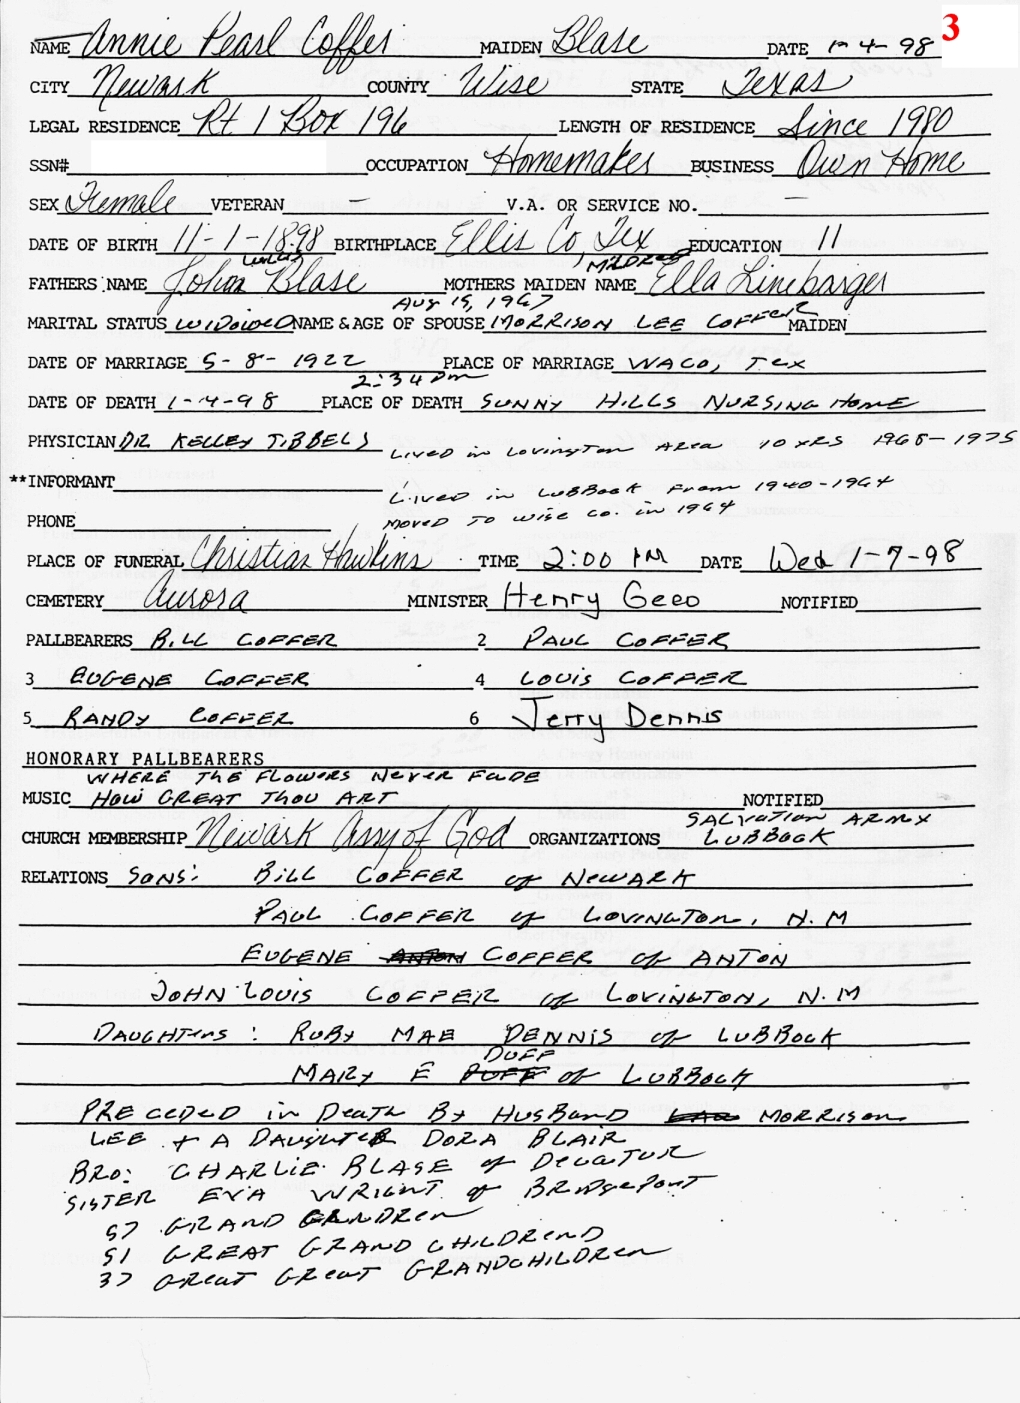 3
NAME Annie Pearl Coffer MAIDEN Blase DATE 1-4-98
CITY Newark COUNTY Wise STATE Texas
LEGAL RESIDENCE Rt 1 Box 196 LENGTH OF RESIDENCE Since 1980
SSN# OCCUPATION Homemaker BUSINESS Own Home
SEX Female VETERAN - V.A. OR SERVICE NO. -
DATE OF BIRTH 11-1-1898 BIRTHPLACE Ellis Co, Tex EDUCATION 11
MILDRED
FATHERS NAME John Blase MOTHERS MAIDEN NAME Ella Linebarger
Aug 15, 1967
MARITAL STATUS WIDOWED NAME & AGE OF SPOUSE MORRISON LEE COFFER MAIDEN
DATE OF MARRIAGE 5-8-1922 PLACE OF MARRIAGE WACO, TEX
2:34 pm
DATE OF DEATH 1-4-98 PLACE OF DEATH SUNNY HILLS NURSING HOME
PHYSICIAN DR KELLEY TIBBELS Lived in Lovington Area 10 YRS 1968-1975
**INFORMANT Lived in LUBBOCK From 1940-1964
PHONE MOVED TO WISE CO. in 1964
PLACE OF FUNERAL Christian Hawkins TIME 2:00 PM DATE Wed 1-7-98
CEMETERY Aurora MINISTER Henry Geeo NOTIFIED
PALLBEARERS BILL COFFER 2 PAUL COFFER
3 EUGENE COFFER 4 LOUIS COFFER
5 RANDY COFFER 6 Jerry Dennis
HONORARY PALLBEARERS
WHERE THE FLOWERS NEVER FADE
MUSIC HOW GREAT THOU ART NOTIFIED
SALVATION ARMY
CHURCH MEMBERSHIP Newark Assy of God ORGANIZATIONS LUBBOCK
RELATIONS SONS: BILL COFFER of NEWARK
PAUL COFFER of LOVINGTON, N.M
EUGENE ANTON COFFER of ANTON
JOHN LOUIS COFFER of LOVINGTON, N.M
DAUGHTERS: RUBY MAE DENNIS of LUBBOCK
DUFF
MARY E PUFF of LUBBOCK
PRECEDED in Death By HUSBAND MORRISON
LEE + A DAUGHTER DORA BLAIR
BRO: CHARLIE BLASE of DECATUR
SISTER EVA WRIGHT of BRIDGEPORT
57 GRAND CHILDREN
51 GREAT GRAND CHILDREND
37 GREAT GREAT GRANDCHILDREN